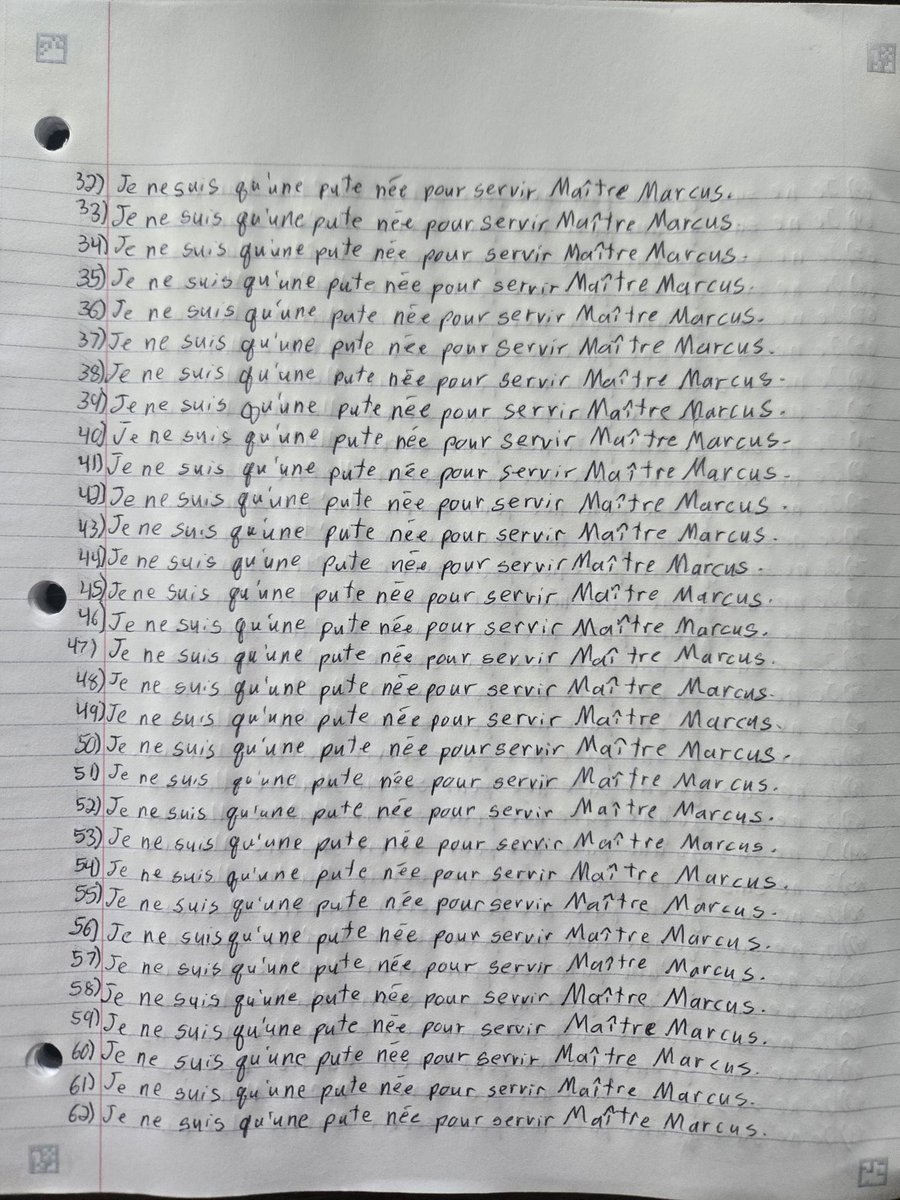 32) Je ne suis qu'une pute née pour servir Maître Marcus.
33) Je ne suis qu'une pute née pour servir Maître Marcus
34) Je ne suis qu'une pute née pour servir Maître Marcus.
35) Je ne suis qu'une pute née pour servir Maître Marcus.
36) Je ne suis qu'une pute née pour servir Maître Marcus.
37) Je ne suis qu'une pute née pour servir Maître Marcus.
38) Je ne suis qu'une pute née pour servir Maître Marcus.
39) Je ne suis qu'une pute née pour servir Maître Marcus.
40) Je ne suis qu'une pute née pour servir Maître Marcus.
41) Je ne suis qu'une pute née pour servir Maître Marcus.
42) Je ne suis qu'une pute née pour servir Maître Marcus.
43) Je ne suis qu'une pute née pour servir Maître Marcus.
44) Je ne suis qu'une pute née pour servir Maître Marcus.
45) Je ne suis qu'une pute née pour servir Maître Marcus.
46) Je ne suis qu'une pute née pour servir Maître Marcus.
47) Je ne suis qu'une pute née pour servir Maître Marcus.
48) Je ne suis qu'une pute née pour servir Maître Marcus.
49) Je ne suis qu'une pute née pour servir Maître Marcus.
50) Je ne suis qu'une pute née pour servir Maître Marcus.
51) Je ne suis qu'une pute née pour servir Maître Marcus.
52) Je ne suis qu'une pute née pour servir Maître Marcus.
53) Je ne suis qu'une pute née pour servir Maître Marcus.
54) Je ne suis qu'une pute née pour servir Maître Marcus.
55) Je ne suis qu'une pute née pour servir Maître Marcus.
56) Je ne suis qu'une pute née pour servir Maître Marcus.
57) Je ne suis qu'une pute née pour servir Maître Marcus.
58) Je ne suis qu'une pute née pour servir Maître Marcus.
59) Je ne suis qu'une pute née pour servir Maître Marcus.
60) Je ne suis qu'une pute née pour servir Maître Marcus.
61) Je ne suis qu'une pute née pour servir Maître Marcus.
62) Je ne suis qu'une pute née pour servir Maître Marcus.